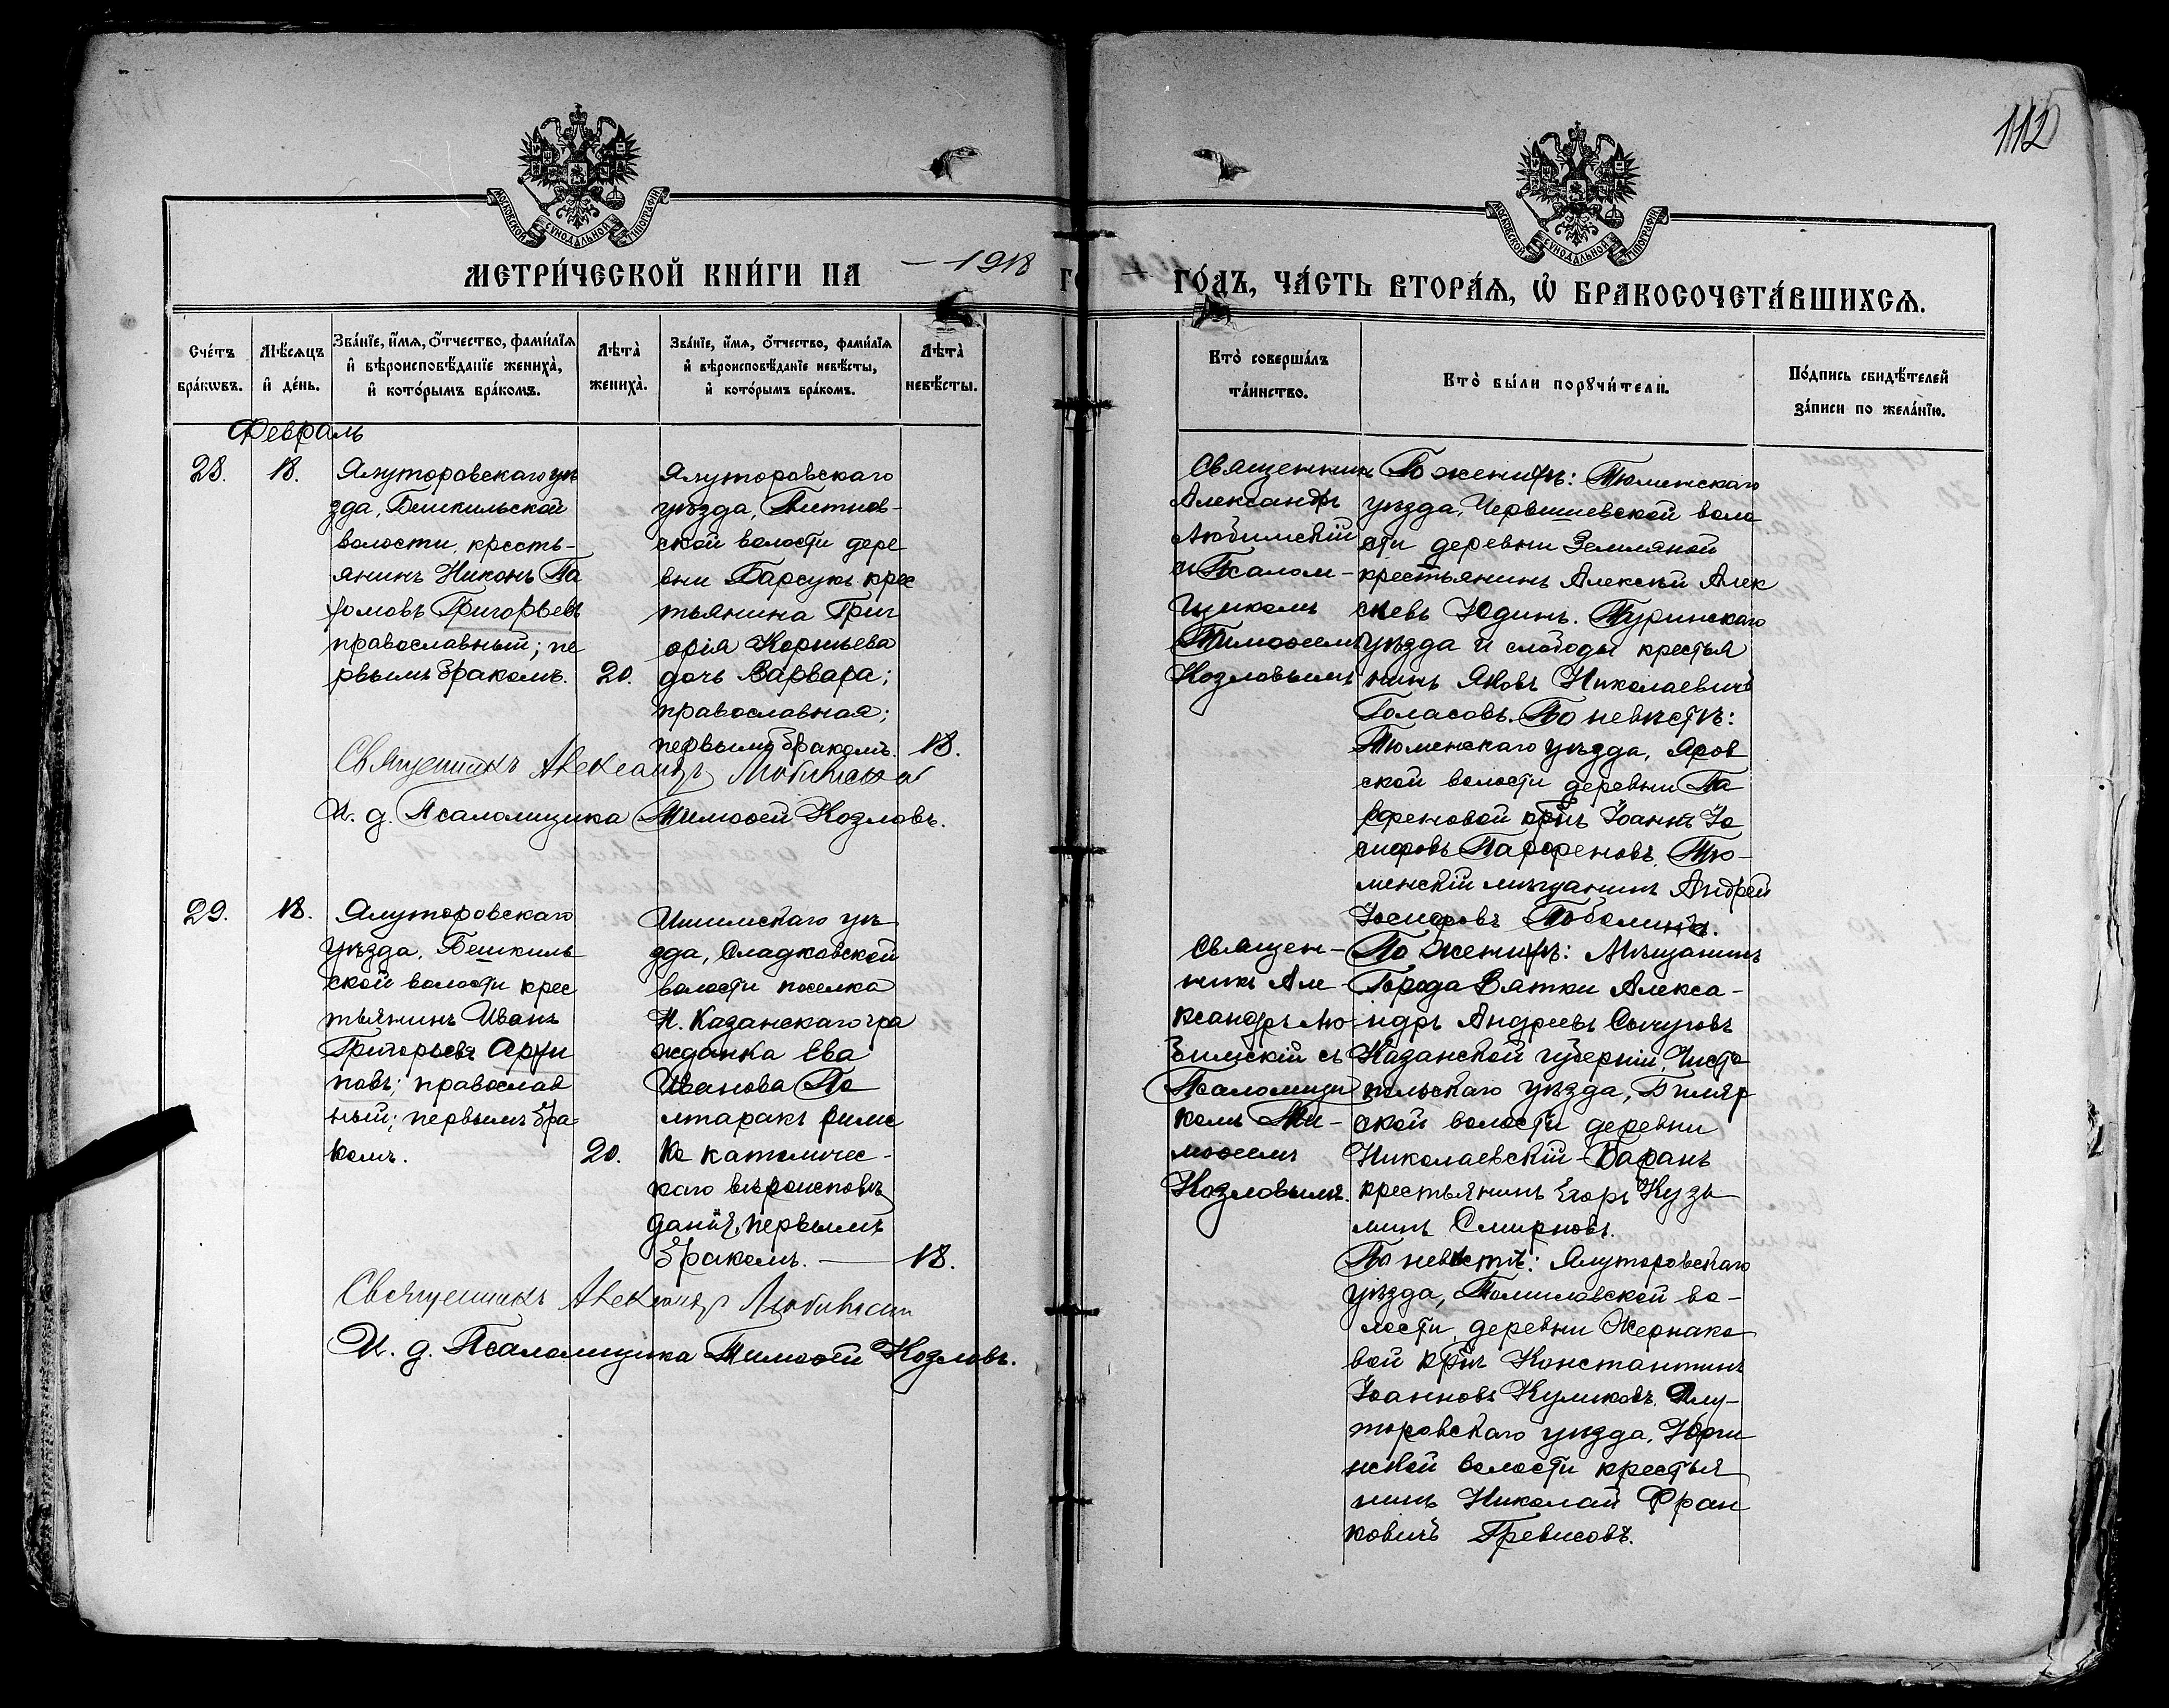 112
МОСКОВСКОЙ СѴНОДАЛЬНОЙ ТИПОГРАФІИ
МОСКОВСКОЙ СѴНОДАЛЬНОЙ ТИПОГРАФІИ
МЕТРИ́ЧЕСКОЙ КНИ́ГИ НА — 1918
ГО́ДЪ, ЧА́СТЬ ВТОРА́Ѧ, Ѡ҆ БРАКОСОЧЕТА́ВШИХСѦ.
Сче́тъ бра́кѡвъ.
Мѣ́сѧцъ и҆ де́нь.
Зва́нїе, и҆́мѧ, ѻ҆́тчество, фами́лїѧ
и҆ вѣроисповѣ́данїе жениха̀,
и҆ кото́рымъ бра́комъ.
Лѣ́та жениха̀.
Зва́нїе, и҆́мѧ, ѻ҆́тчество, фами́лїѧ
и҆ вѣроисповѣ́данїе невѣ́сты,
и҆ кото́рымъ бра́комъ.
Лѣ́та невѣ́сты.
Кто̀ соверша́лъ
та́инство.
Кто̀ бы́ли порꙋчи́тели.
По́дпись свидѣ́телей
за́писи по жела́нїю.
Февраль
28.
18.
Ялуторовскаго уѣ
зда, Бешкильской
волости, кресть-
янинъ Никонъ Па
хомовъ Григорьевъ
православный; пе
рвымъ бракомъ.
20.
Ялуторовскаго
уѣзда, Пятков-
ской волости дере
вни Барсукъ крес
тьянина Григ
орія Корнѣева
дочь Варвара;
православная;
первымъ бракомъ.
18.
Священникъ
Александръ
Любимскій
съ Псалом-
щикомъ
Тимоѳеемъ
Козловымъ
По женихѣ: Тюменскаго
уѣзда, Червишевской воло
сти деревни Земляной
крестьянинъ Алексѣй Алек
сѣевъ Юдинъ. Туринскаго
уѣзда и слободы крестья
нинъ Яковъ Николаевичъ
Голасовъ. По невѣстѣ:
Тюменскаго уѣзда, Яров
ской волости деревни Па
рфеновой кр̃нъ Іоаннъ Іо
сифовъ Парфеновъ. Тю-
менскій мѣщанинъ Андрей
Іосифовъ Тоболинъ.
Священникъ Александръ Любимскій
И. д. Псаломщика Тимоѳей Козловъ.
29.
18.
Ялуторовскаго
уѣзда, Бешкиль
ской волости крес
тьянинъ Иванъ
Григорьевъ Архи
повъ; православ
ный; первымъ бра
комъ.
20.
Ишимскаго уѣ
зда, Сладковской
волости поселка
Н. Казанскаго гра
жданка Ева
Иванова По
лтаракъ римс
ко католичес-
каго вѣроисповѣ
данія, первымъ
бракомъ. —
18.
Священ-
никъ Але-
ксандръ Лю-
бимскій съ
Псаломщи
комъ Ти-
моѳеемъ
Козловымъ.
По женихѣ: Мѣщанинъ
Города Вятки Алекса-
ндръ Андреевъ Сычуговъ
Казанской губерніи, Чисто
польскаго уѣзда, Биляр
ской волости деревни
Николаевскій-Баранъ
крестьянинъ Егоръ Кузь
минъ Смирновъ.
По невѣстѣ: Ялуторовскаго
уѣзда, Томиловской во-
лости, деревни Жернако
вой кр̃нъ Константинъ
Іоанновъ Куликовъ. Ялу-
торовскаго уѣзда, Юрги
нской волости крестья
нинъ Николай Фран
ковичъ Гревисовъ.
Священникъ Александръ Любимскій
И. д. Псаломщика Тимоѳей Козловъ.